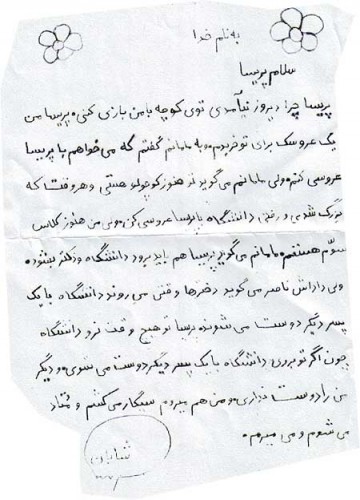 به نام خدا
سلام پریسا
پریسا چرا دیروز نیآمدی توی کوچه با من بازی کنی. پریسا من
یک عروسک برای تو خریدم. به مامانم گفتم که می خواهم با پریسا
عروسی کنم. ولی مامانم می گوید تو هنوز کوچولو هستی و هر وقت که
بزرگ شدی و رفتی دانشگاه با پریسا عروسی کن. ولی من هنوز کلاس
سوّم هستم. مامانم می گوید پریسا هم باید برود دانشگاه و دکتر بشود.
ولی داداش ناصر می گوید دخترها وقتی می روند دانشگاه با یک
پسر دیگر دوست می شوند. پریسا تو هیچ وقت نرو دانشگاه
چون اگر تو بروی دانشگاه با یک پسر دیگر دوست می شوی و دیگر
من را دوست نداری. و من هم میروم سیگار می کشم و معتاد
می شوم و می میرم.
شایان